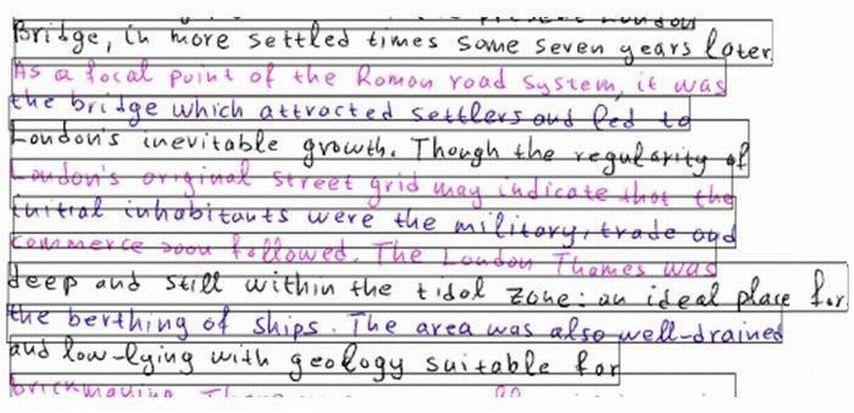 the present London
Bridge, in more settled times some seven years later
As a focal point of the Roman road system, it was
the bridge which attracted settlers and led to
London's inevitable growth. Though the regularity of
London's original street grid may indicate that the
initial inhabitants were the military, trade and
commerce soon followed. The London Thames was
deep and still within the tidal zone: an ideal place for
the berthing of ships. The area was also well-drained
and low-lying with geology suitable for
brickmaking